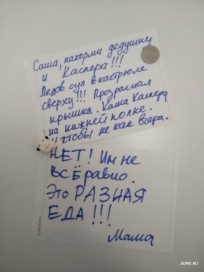 Саша, накорми дедушку
и Каспера!!!
Дедов суп в кастрюле
сверху!!! Прозрачная
крышка. Каша Касперу
на нижней полке.
И чтобы не как вчера.
НЕТ! Им не
ВСЁ равно.
Это РАЗНАЯ
ЕДА!!!
Мама
ADME.RU